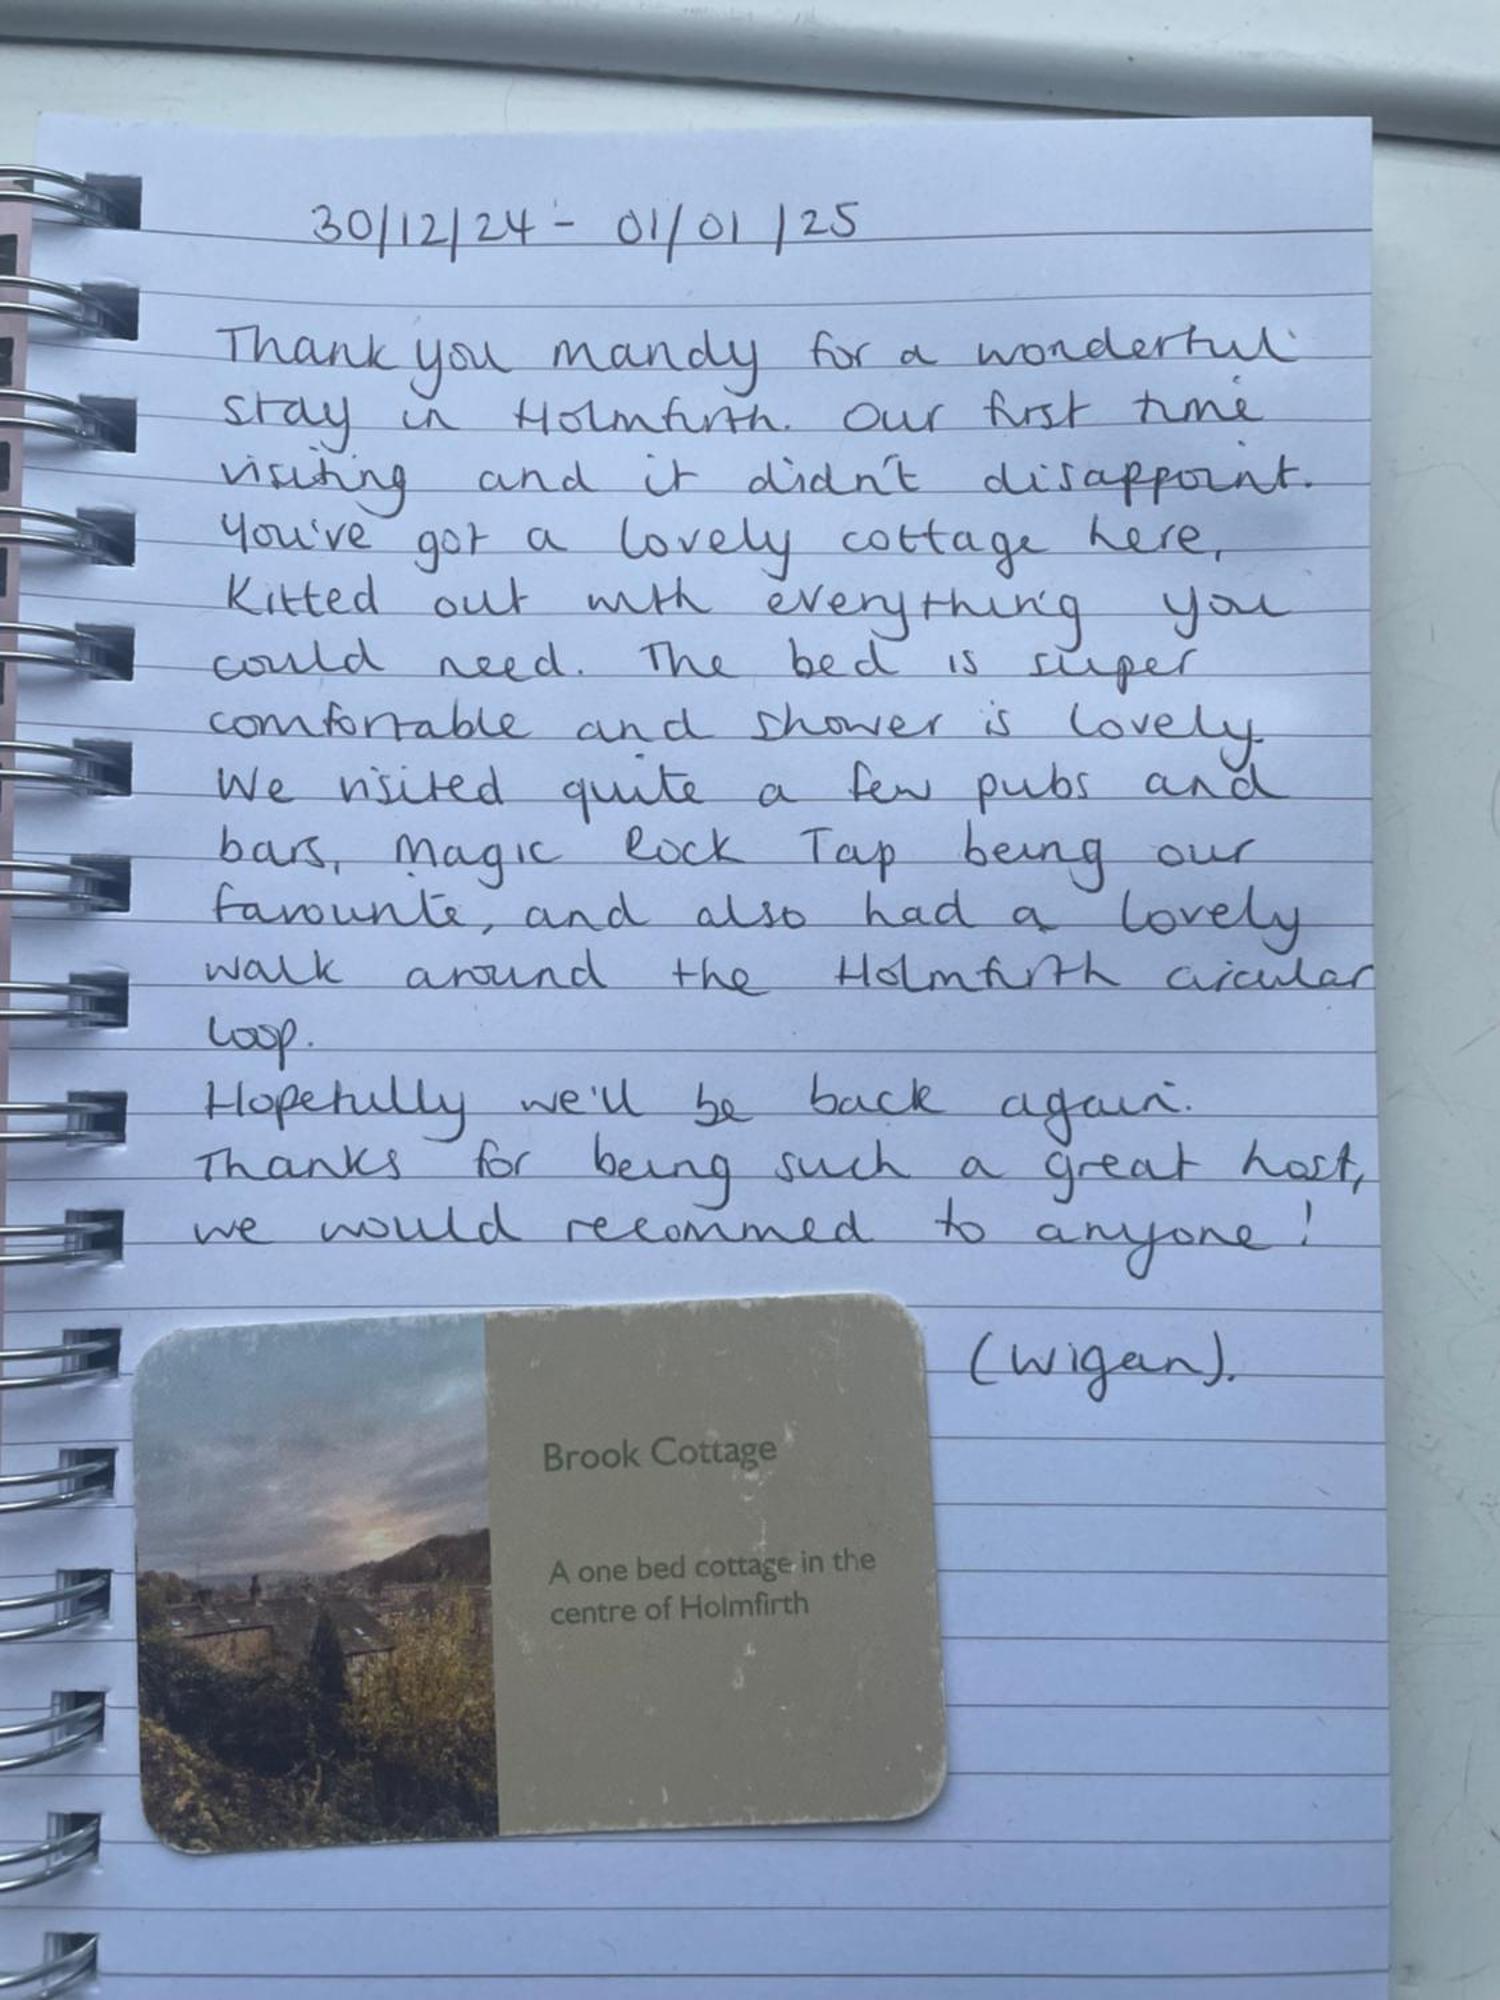 30/12/24 - 01/01/25
Thank you mandy for a wonderful
stay in Holmfirth. Our first time
visiting and it didn't disappoint.
You've got a lovely cottage here,
Kitted out with everything you
could need. The bed is super
comfortable and shower is lovely.
We visited quite a few pubs and
bars, Magic Rock Tap being our
favourite, and also had a lovely
walk around the Holmfirth circular
loop.
Hopefully we'll be back again.
Thanks for being such a great host,
we would recommed to anyone!
(Wigan).
Brook Cottage
A one bed cottage in the
centre of Holmfirth